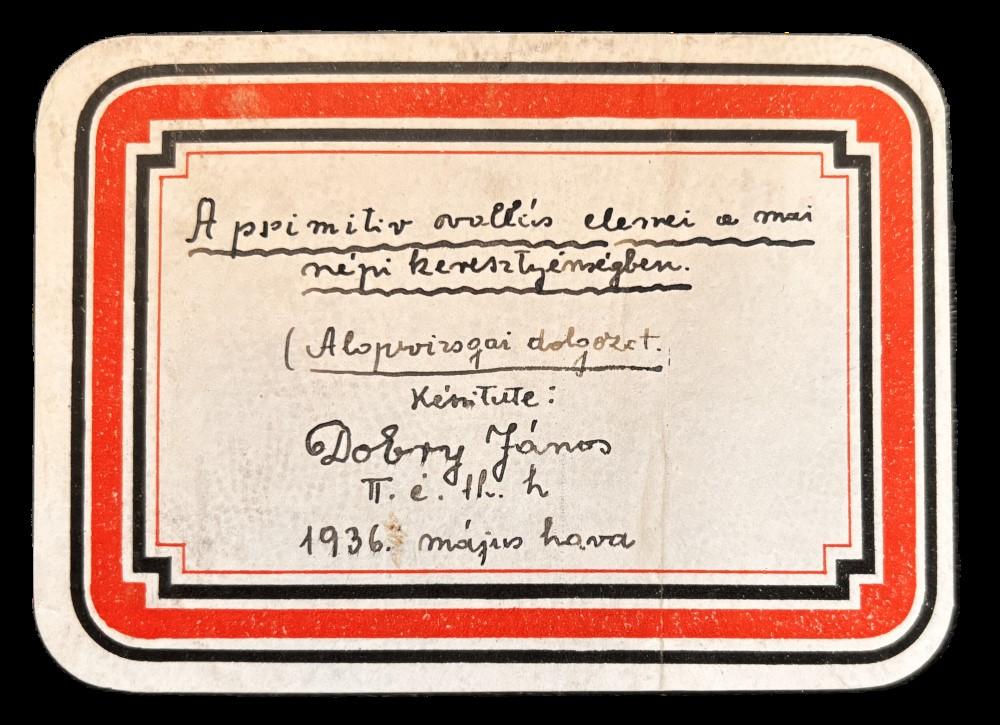 A primitiv vallás elemei a mai
népi keresztyénségben.
(Alapvizsgai dolgozat.
Készitette:
Dobry János
II. é. th. h
1936. május hava